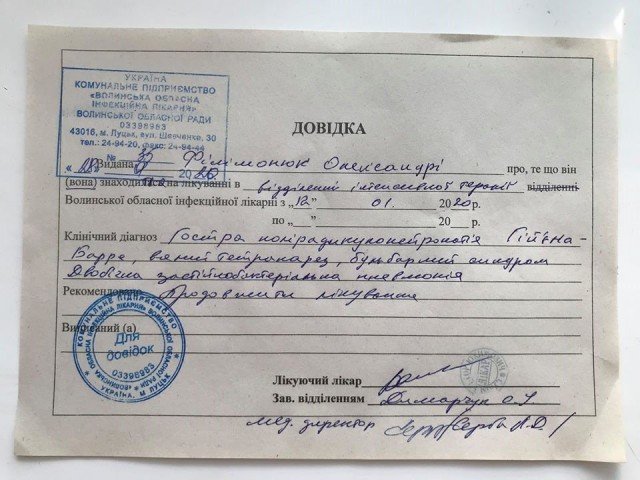 УКРАЇНА
КОМУНАЛЬНЕ ПІДПРИЄМСТВО
«ВОЛИНСЬКА ОБЛАСНА
ІНФЕКЦІЙНА ЛІКАРНЯ»
ВОЛИНСЬКОЇ ОБЛАСНОЇ РАДИ
03398983
43016, м. Луцьк, вул. Шевченка, 30
тел.: 24-94-20, факс: 24-94-44
№ 33
20 20
ДОВІДКА
Видана Філімонюк Олександрі про, те що він
(вона) знаходиться на лікуванні в відділенні інтенсивної терапії відділенні
Волинської обласної інфекційної лікарні з „12” 01. 2020р.
по „ ” 20 р.
Клінічний діагноз Гостра полірадикулонейропатія Гійєна-
Барре, в'ялий тетрапарез, бульбарний синдром
Двобічна застійнобактеріальна пневмонія
Рекомендовано Продовжити лікування
Виписаний (а)
КОМУНАЛЬНЕ ПІДПРИЄМСТВО
Для
довідок
03398983
УКРАЇНА, М. ЛУЦЬК
Лікуючий лікар
Зав. відділенням Димарчук
Мед. директор